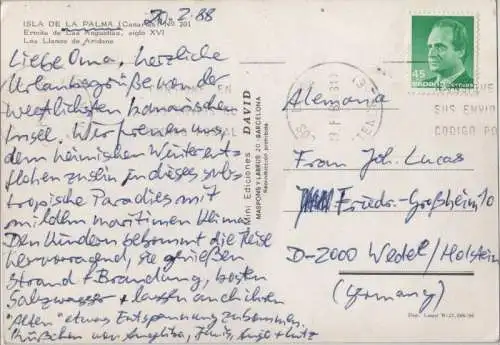 20.2.88
ISLA DE LA PALMA (Canarias) No. 201
Ermita de Las Angustias, siglo XVI
Los Llanos de Aridane
Liebe Oma, herzliche
Urlaubsgrüße von der
westlichsten kanarischen
Insel. Wir freuen uns,
dem heimischen Winter ent-
flohen zu sein in dieses sub-
tropische Paradies mit
mildem maritimen Klima.
Den Kindern bekommt die Reise
hervorragend, sie genießen
Strand + Brandung,
Salzwasser + lassen auch ihren
"Alten" etwas Entspannung zukommen.
Küßchen von Angelika, + Lutz
Mini Ediciones DAVID
BARCELONA
45
Alemania
SUS ENVIO
CODIGO PO
Frau Joh. Lucas
Friedr.-Großheim 10
D-2000 Wedel/Holstein
(Germany)